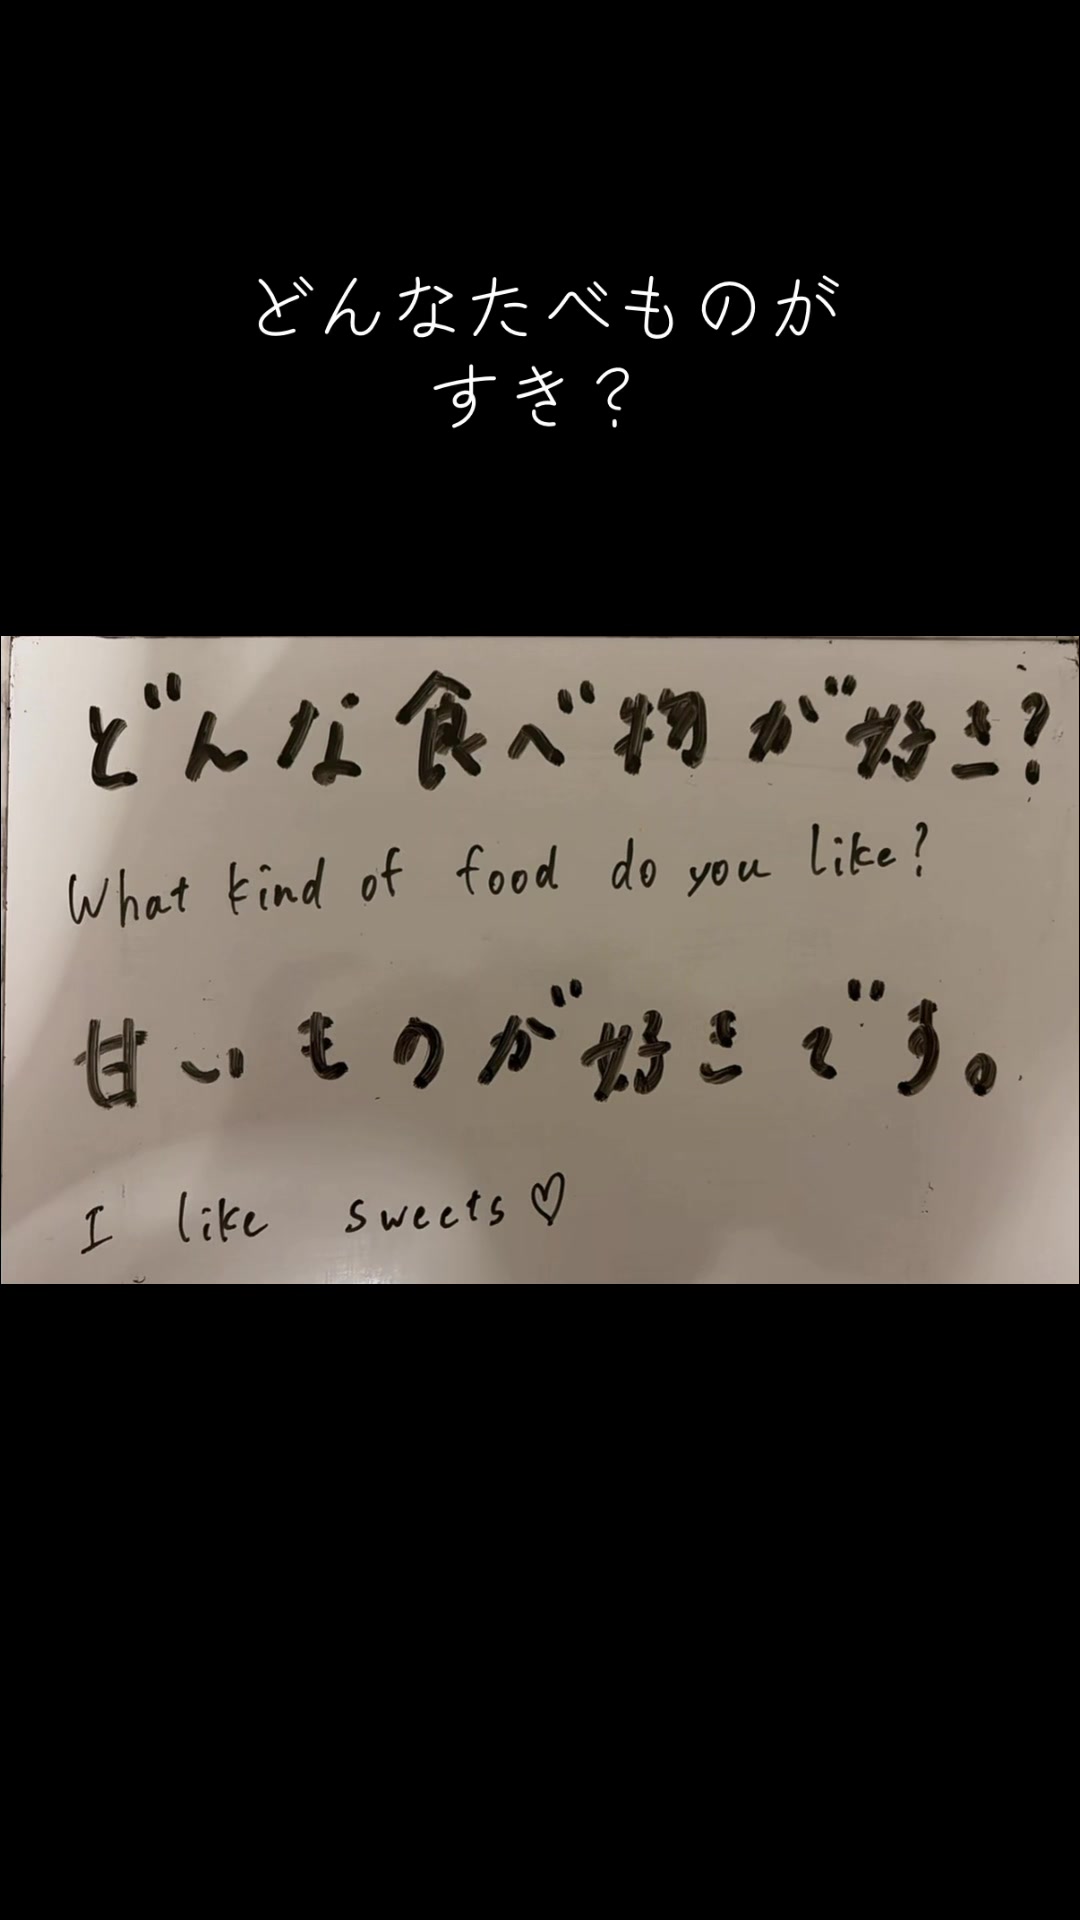 どんなたべものが
すき?
どんな食べ物が好き?
What kind of food do you like?
甘いものが好きです。
I like sweets♡